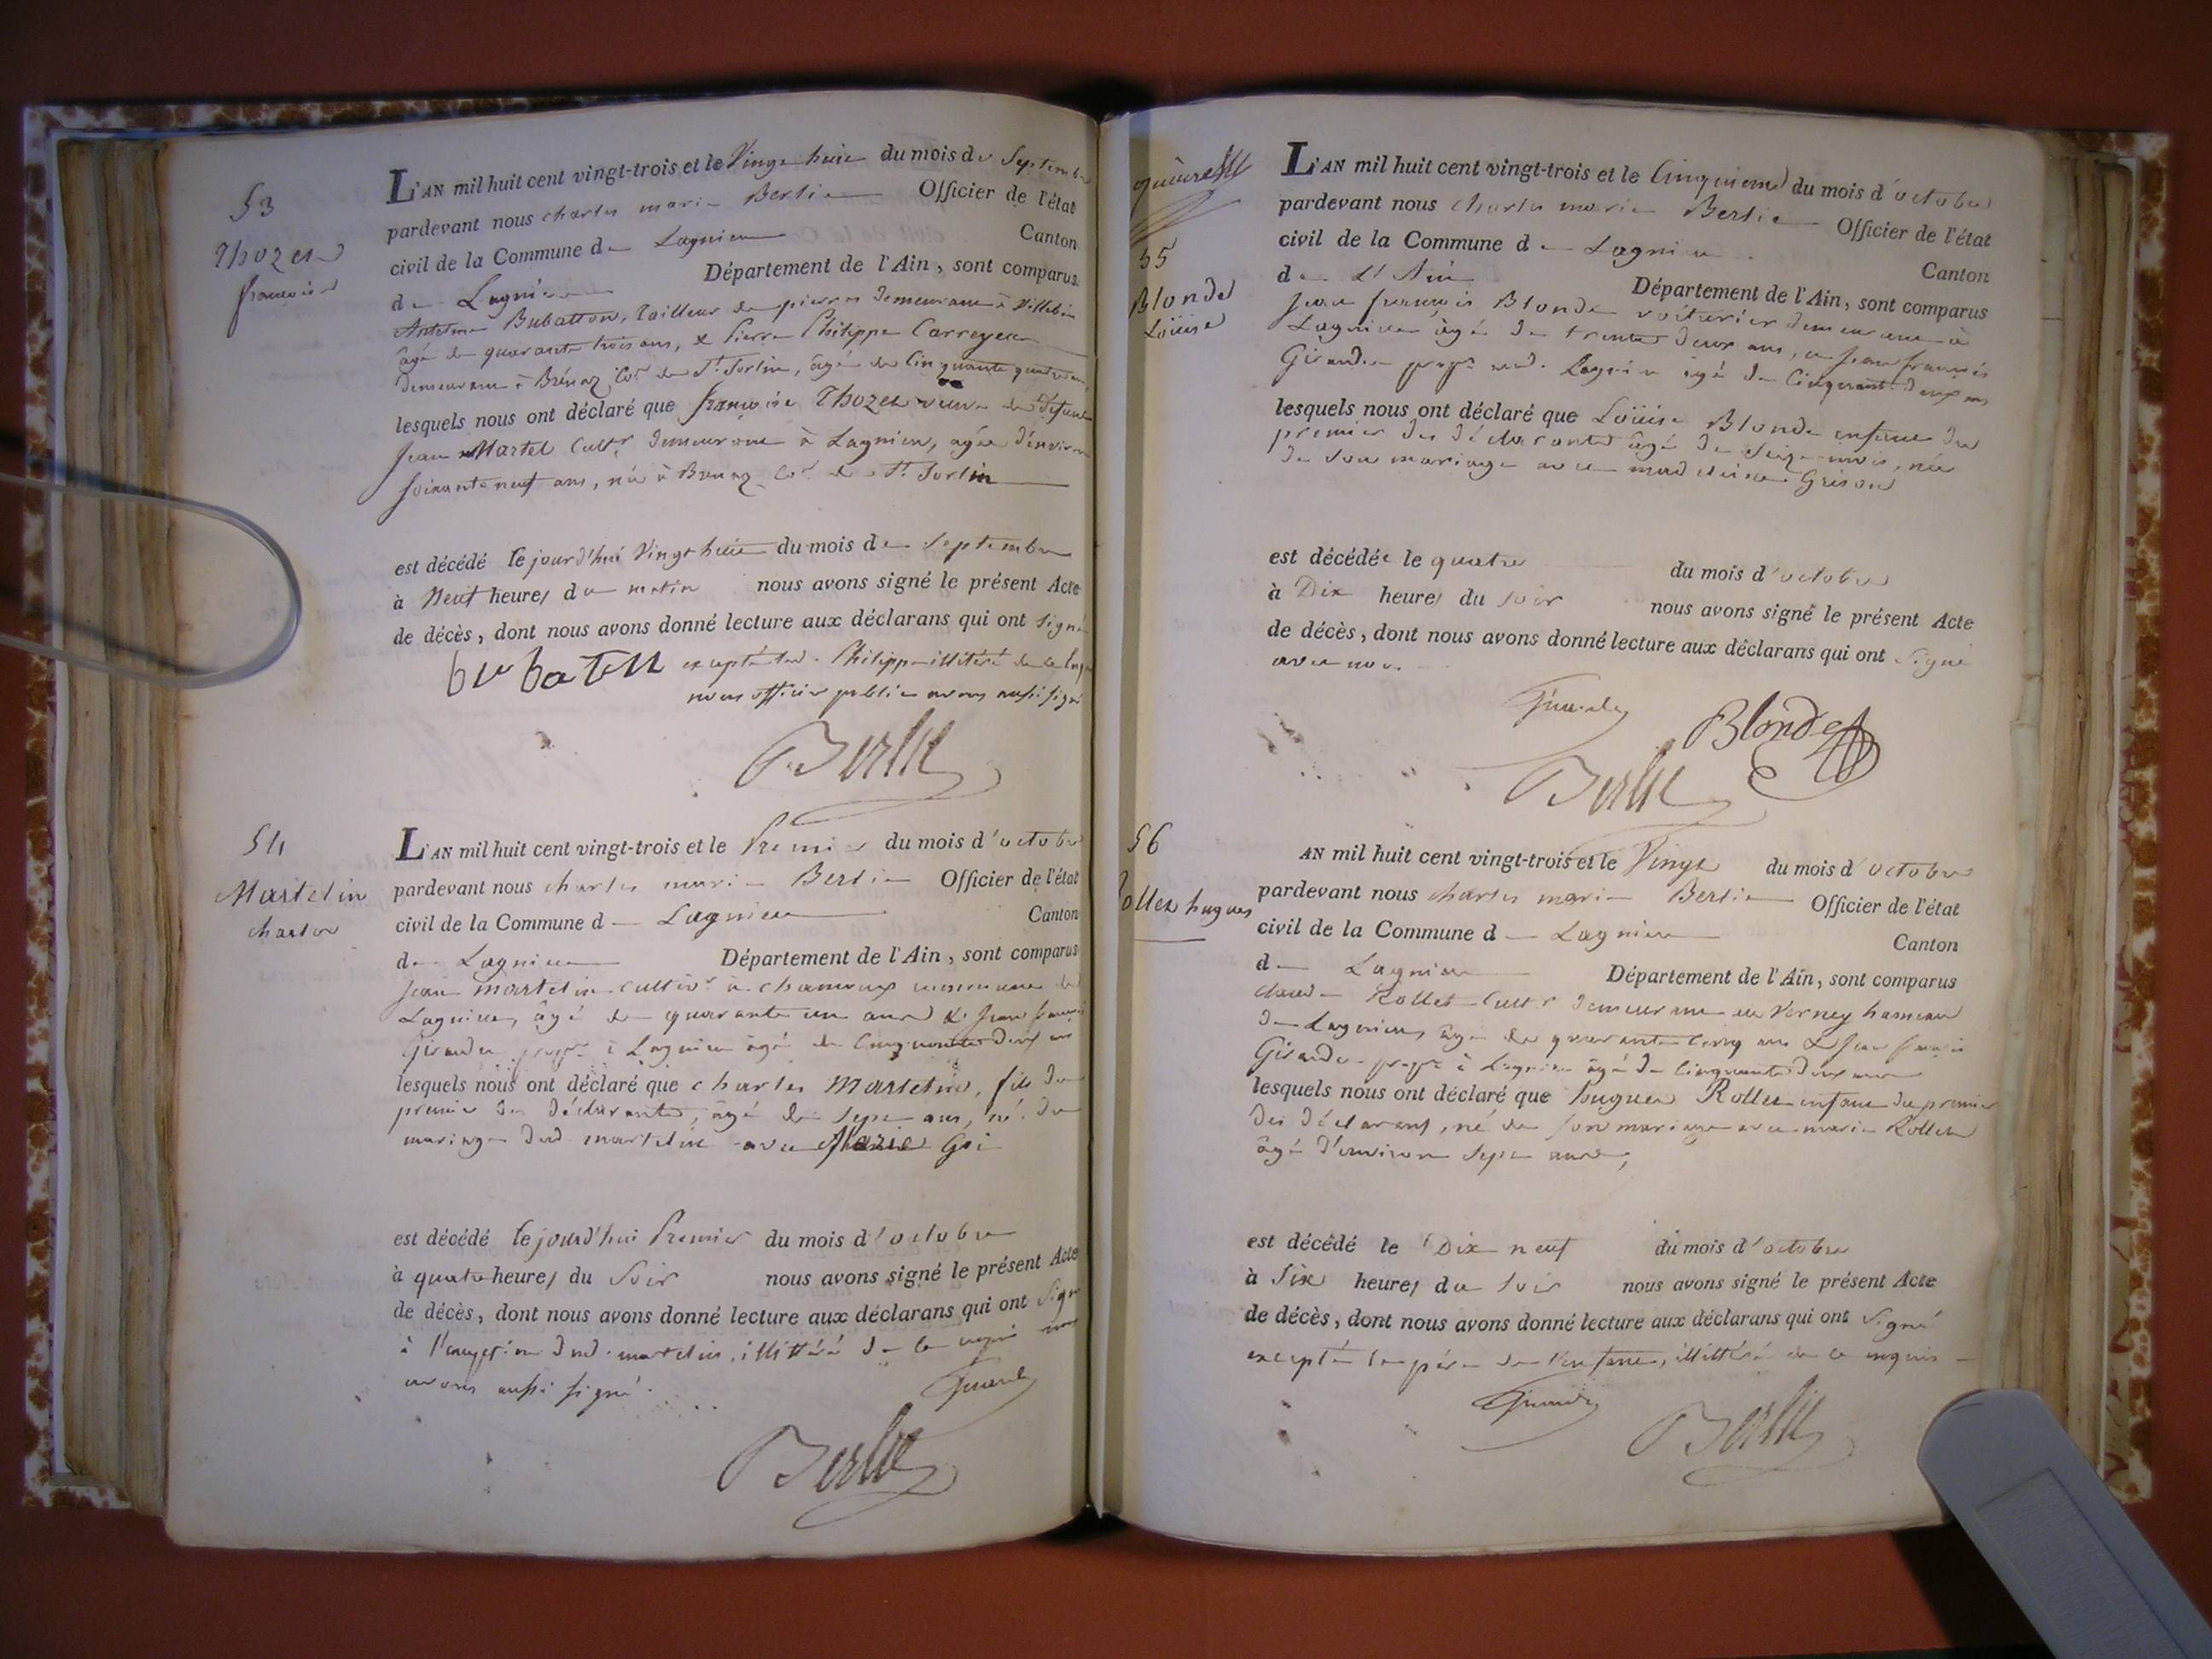 53
Thozet
françoise
L'AN mil huit cent vingt-trois et le Vingt huit du mois de Septembre
pardevant nous charles marie Berlie Officier de l'état
civil de la Commune de Lagnieu Canton
de Lagnieu Département de l'Ain, sont comparus
Anthelme Bubatton, tailleur de pierres demeurant à Villebois
âgé de quarante trois ans, et Pierre Philippe Carreyeur
demeurant à Brénaz Con de St. Sorlin, âgé de Cinquante quatre ans,
lesquels nous ont déclaré que françoise Thozet veuve de défunt
Jean Martel Cultr. demeurant à Lagnieu, agée d'environ
soixante neuf ans, née à Brenaz Con de St. Sorlin
est décédé le jourd'hui Vingt huit du mois de Septembre
à Neuf heures du matin nous avons signé le présent Acte
de décès, dont nous avons donné lecture aux déclarans qui ont signé
bubaton excepté led. Philippe illitéré de ce
nous officier public avons aussi signé
Berlie
54
Martelin
charles
L'AN mil huit cent vingt-trois et le Premier du mois d'octobre
pardevant nous charles marie Berlie Officier de l'état
civil de la Commune d Lagnieu Canton
de Lagnieu Département de l'Ain, sont comparus
Jean martelin cultivr. à commune de
Lagnieu, âgé de quarante un ans et Jean françois
Girardet propre. à Lagnieu âgé de Cinquante deux ans
lesquels nous ont déclaré que charles Martelin, fils du
premier des déclarants, âgé de sept ans, né du
mariage dud. martelin avec Marie Goi
est décédé le jourd'hui Premier du mois d'octobre
à quatre heures du Soir nous avons signé le présent Acte
de décès, dont nous avons donné lecture aux déclarans qui ont signé
à l'exception dud. martelin, illittéré de ce requis nous
avons aussi signé.
Berlie
55
Blonde
Loüise
L'AN mil huit cent vingt-trois et le Cinquieme du mois d'octobre
pardevant nous charles marie Berlie Officier de l'état
civil de la Commune de Lagnieu Canton
de L'Ain Département de l'Ain, sont comparus
Jean françois Blonde voiturier demeurant à
Lagnieu âgé de trente deux ans, et Jean françois
Girardet propre. aud. Lagnieu agé de Cinquante deux ans
lesquels nous ont déclaré que Loüise Blonde enfant du
premier des déclarants âgé de Seize mois, née
de son mariage avec Grison
est décédée le quatre du mois d'octobre
à Dix heures du soir nous avons signé le présent Acte
de décès, dont nous avons donné lecture aux déclarans qui ont Signé
avec nous
Blonde
Berlie
56
Rollet hugues
AN mil huit cent vingt-trois et le Vingt du mois d'octobre
pardevant nous charles marie Berlie Officier de l'état
civil de la Commune d Lagnieu Canton
de Lagnieu Département de l'Ain, sont comparus
claude Rollet Cultr demeurant au Verney hameau
de Lagnieu, âgé de quarante Cinq ans et Jean françois
Girardet propre à Lagnieu âgé de Cinquante deux ans
lesquels nous ont déclaré que hugues Rollet enfant du premier
des déclarans, né de son mariage avec marie Rollet
âgé d'environ sept ans,
est décédé le Dix neuf du mois d'octobre
à Six heures du soir nous avons signé le présent Acte
de décès, dont nous avons donné lecture aux déclarans qui ont signé
excepté le père de l'enfant, illittéré de ce requis
Berlie